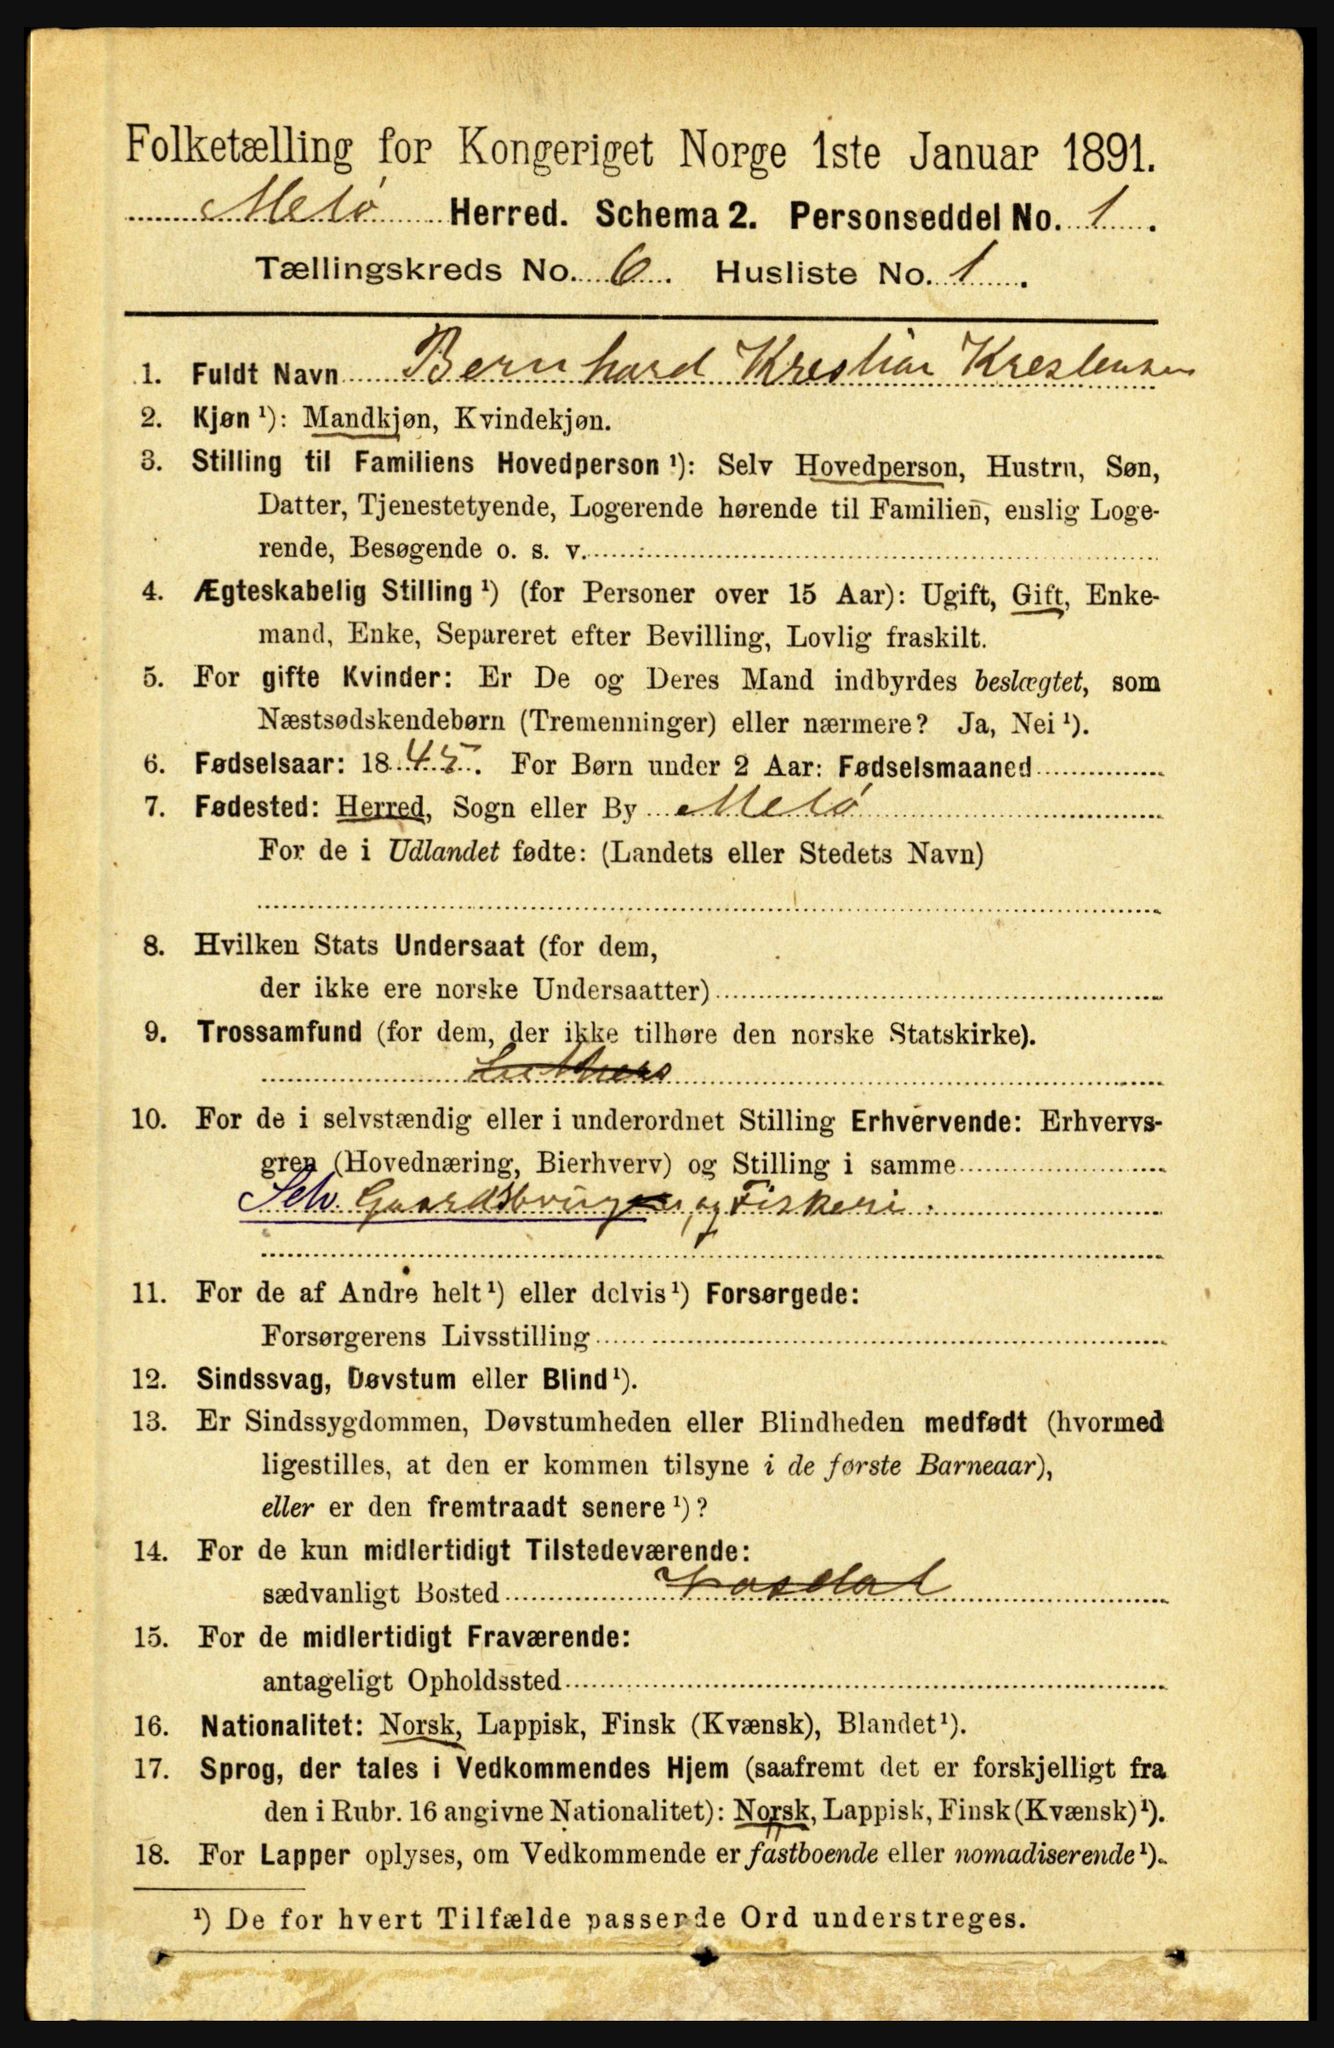 Folketælling for Kongeriget Norge 1ste Januar 1891.
Melö Herred. Schema 2. Personseddel No. 1.
Tællingskreds No. 6. Husliste No. 1.
1. Fuldt Navn Bernhard Krestian Krestensen
2. Kjøn ¹): Mandkjøn, Kvindekjøn.
3. Stilling til Familiens Hovedperson ¹): Selv Hovedperson, Hustru, Søn,
Datter, Tjenestetyende, Logerende hørende til Familien, enslig Loge-
rende, Besøgende o. s. v.
4. Ægteskabelig Stilling ¹) (for Personer over 15 Aar): Ugift, Gift, Enke-
mand, Enke, Separeret efter Bevilling, Lovlig fraskilt.
5. For gifte Kvinder: Er De og Deres Mand indbyrdes beslægtet, som
Næstsødskendebørn (Tremenninger) eller nærmere? Ja, Nei ¹).
6. Fødselsaar: 1845. For Børn under 2 Aar: Fødselsmaaned
7. Fødested: Herred, Sogn eller By Melö
For de i Udlandet fødte: (Landets eller Stedets Navn)
8. Hvilken Stats Undersaat (for dem,
der ikke ere norske Undersaatter)
9. Trossamfund (for dem, der ikke tilhøre den norske Statskirke).
10. For de i selvstændig eller i underordnet Stilling Erhvervende: Erhvervs-
gren (Hovednæring, Bierhverv) og Stilling i samme
Selv. Gaardbruger, og Fiskeri.
11. For de af Andre helt ¹) eller delvis ¹) Forsørgede:
Forsørgerens Livsstilling
12. Sindssvag, Døvstum eller Blind ¹).
13. Er Sindssygdommen, Døvstumheden eller Blindheden medfødt (hvormed
ligestilles, at den er kommen tilsyne i de første Barneaar),
eller er den fremtraadt senere ¹)?
14. For de kun midlertidigt Tilstedeværende:
sædvanligt Bosted
15. For de midlertidigt Fraværende:
antageligt Opholdssted
16. Nationalitet: Norsk, Lappisk, Finsk (Kvænsk), Blandet ¹).
17. Sprog, der tales i Vedkommendes Hjem (saafremt det er forskjelligt fra
den i Rubr. 16 angivne Nationalitet): Norsk, Lappisk, Finsk (Kvænsk) ¹).
18. For Lapper oplyses, om Vedkommende er fastboende eller nomadiserende ¹).
¹) De for hvert Tilfælde passende Ord understreges.